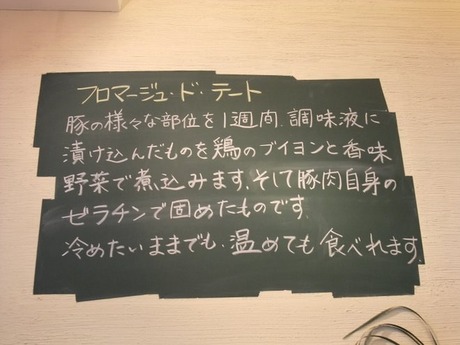 フロマージュ・ド・テート
豚の様々な部位を1週間.調味液に
漬け込んだものを鶏のブイヨンと香味
野菜で煮込みます.そして豚肉自身の
ゼラチンで固めたものです.
冷めたいままでも.温めても食べれます.